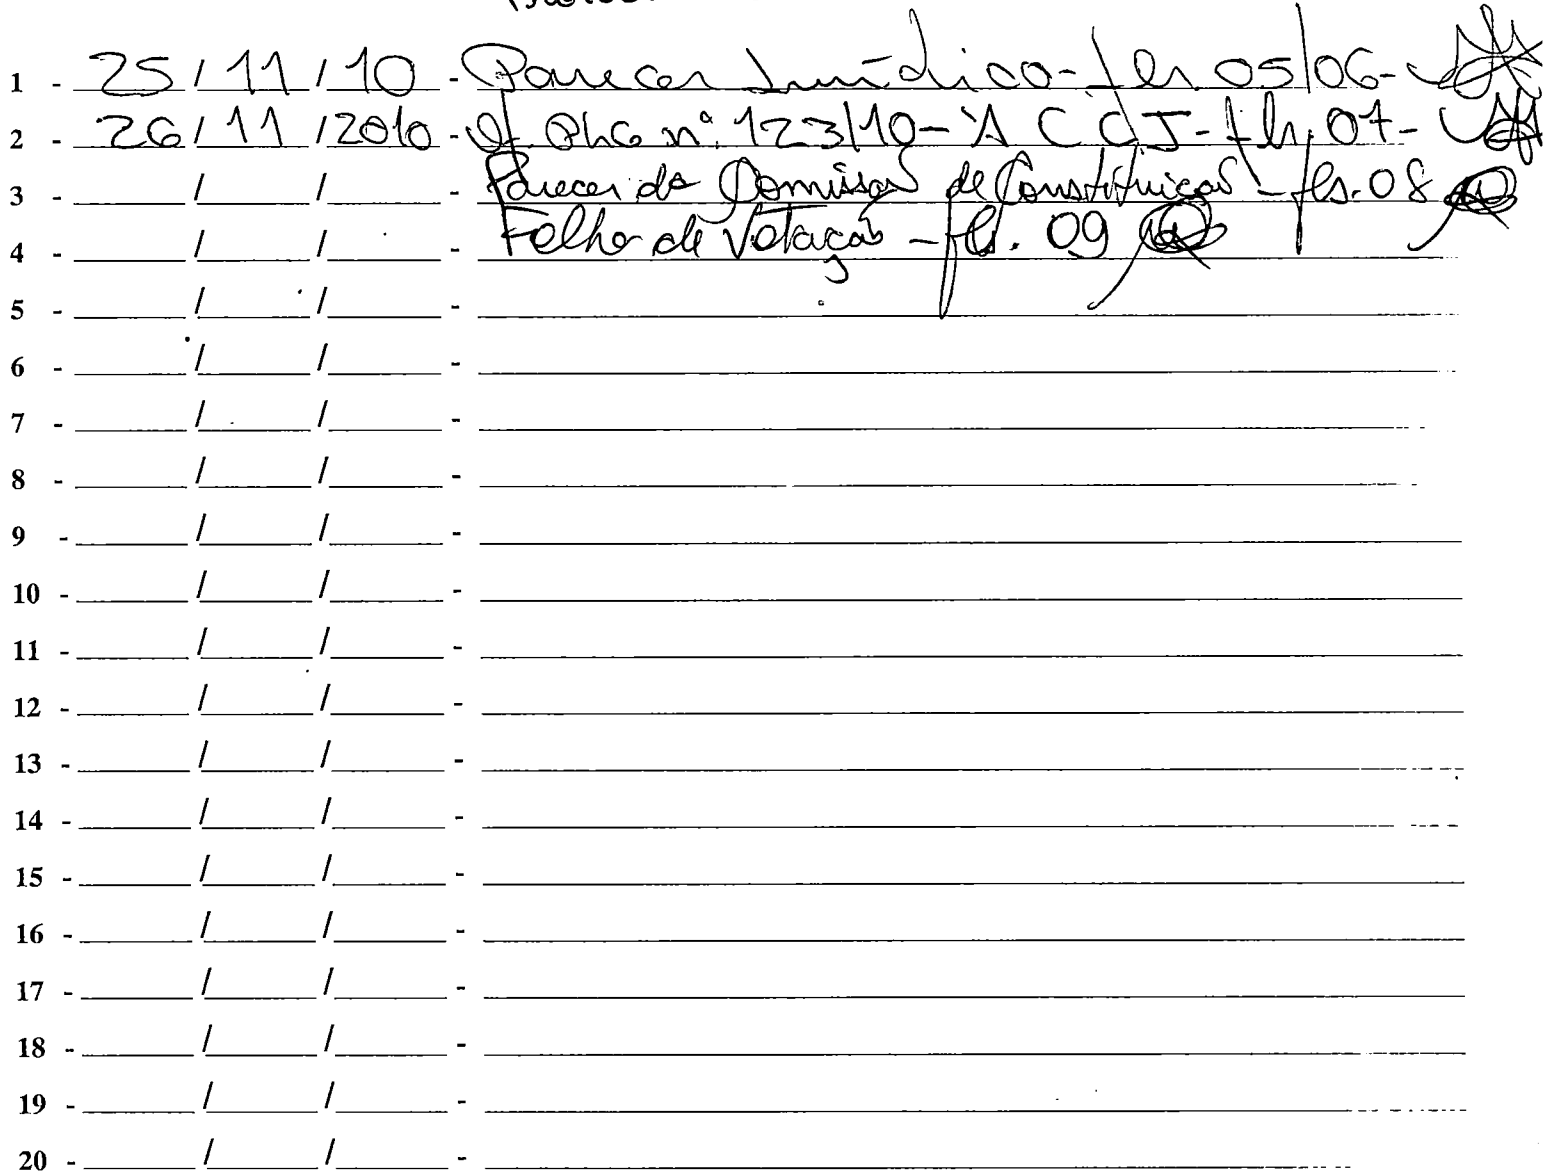 1 - 25/11/10 - Parecer Jurídico - fls. 05/06 -
2 - 26/11/2010 - Of. PhG nº. 123/10 - À CCJ - fls. 07 -
3 - / / - Parecer da Comissão de Constituição - fls. 08
4 - / / - Folha de Votação - fls. 09
5 - / / -
6 - / / -
7 - / / -
8 - / / -
9 - / / -
10 - / / -
11 - / / -
12 - / / -
13 - / / -
14 - / / -
15 - / / -
16 - / / -
17 - / / -
18 - / / -
19 - / / -
20 - / / -